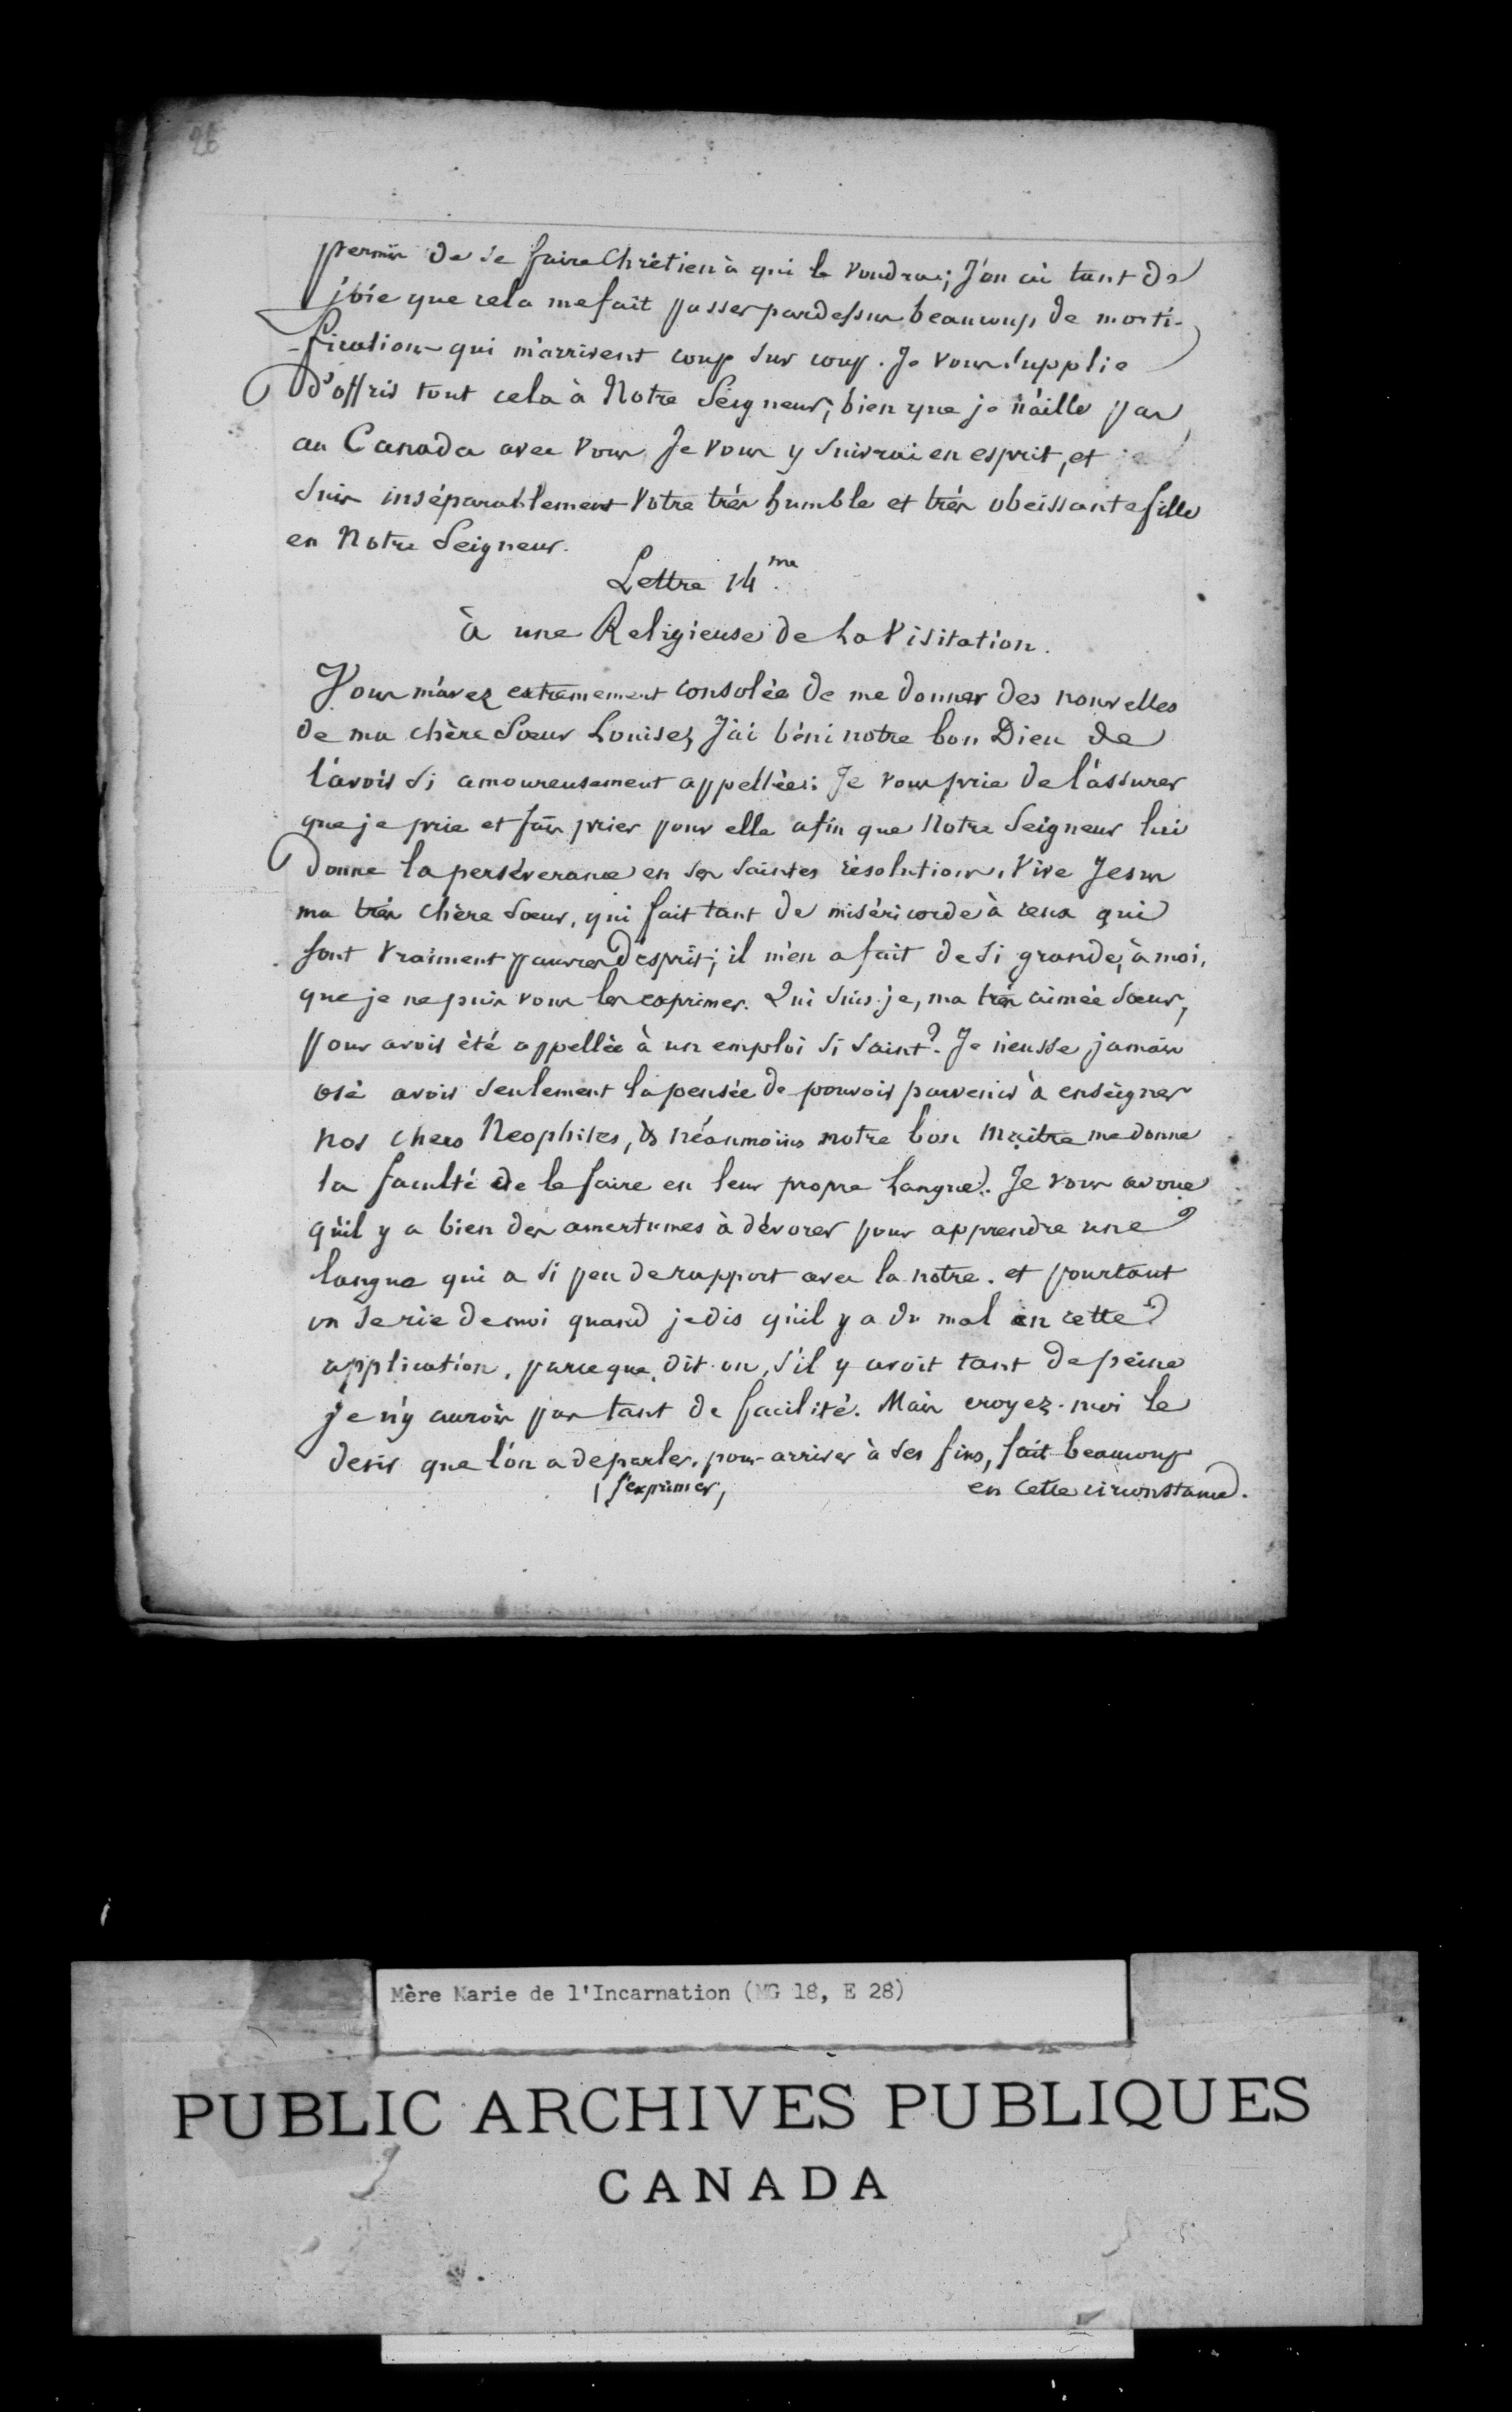 26
permis de se faire Chrétien à qui le voudra; J'en ai tant de
joie que cela me fait passer pardessus beaucoup de morti-
-fications qui m'arrivent coup sur coup. Je vous supplie
d'offrir tout cela à Notre Seigneur; bien que je n'aille pas
au Canada avec vous Je vous y suivrai en esprit, et je
suis inséparablement Votre très humble et très obeissante fille
en Notre Seigneur.
Lettre 14me.
à une Religieuse de la Visitation.
Vous m'avez extremement consolée de me donner des nouvelles
de ma chère Sœur Louise, J'ai béni notre bon Dieu de
l'avoir si amoureusement appellée: Je vous prie de l'assurer
que je prie et fais prier pour elle afin que Notre Seigneur lui
donne la perséverance en ses saintes résolutions. Vive Jesus
ma très chère Sœur, qui fait tant de miséricorde à ceux qui
sont vraiment pauvres d'esprit; il m'en a fait de si grande, à moi,
que je ne puis vous les exprimer. Qui suis-je, ma très aimée Sœur,
pour avoir été appellée à un emploi si saint? Je n'eusse jamais
osé avoir seulement la pensée de pouvoir parvenir à enseigner
nos chers Neophites, & néanmoins notre bon Maitre me donne
la faculté de le faire en leur propre Langue. Je vous avoue
qu'il y a bien des amertumes à dévorer pour apprendre une
langue qui a si peu de rapport avec la notre. et pourtant
on se rie de moi quand je dis qu'il y a du mal en cette
application, parceque, dit-on, s'il y avoit tant de peine
je n'y aurois pas tant de facilité. Mais croyez-moi le
desir que l'on a de parler, pour arriver à ses fins, fait beaucoup
s'exprimer, en cette circonstance.
Mère Marie de l'Incarnation (MG 18, E 28)
PUBLIC ARCHIVES PUBLIQUES
CANADA